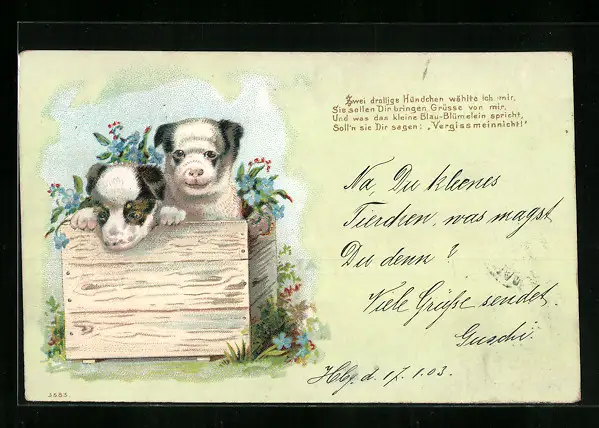 Zwei drollige Hündchen wählte ich mir,
Sie sollen Dir bringen Grüsse von mir,
Und was das kleine Blau-Blümelein spricht,
Soll'n sie Dir sagen: „Vergissmeinnicht!"
Na, Du kleines
Tierchen, was magst
Du denn?
Viele Grüße sendet
Guschi.
Hbg. d. 17.1.03.
3685.